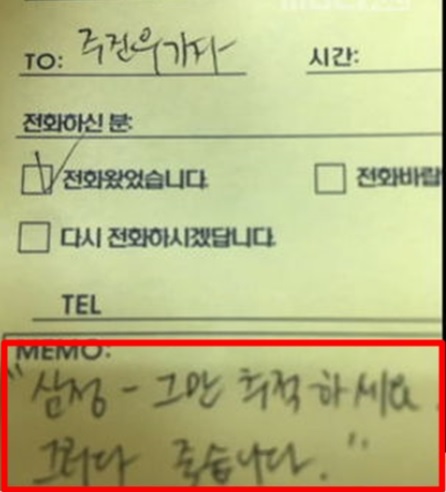 TO: 주진우기자 시간:
전화하신 분:
전화왔었습니다. 전화바람
다시 전화하시겠답니다.
TEL
MEMO:
"삼성 - 그만 추적하세요.
그러다 죽습니다."